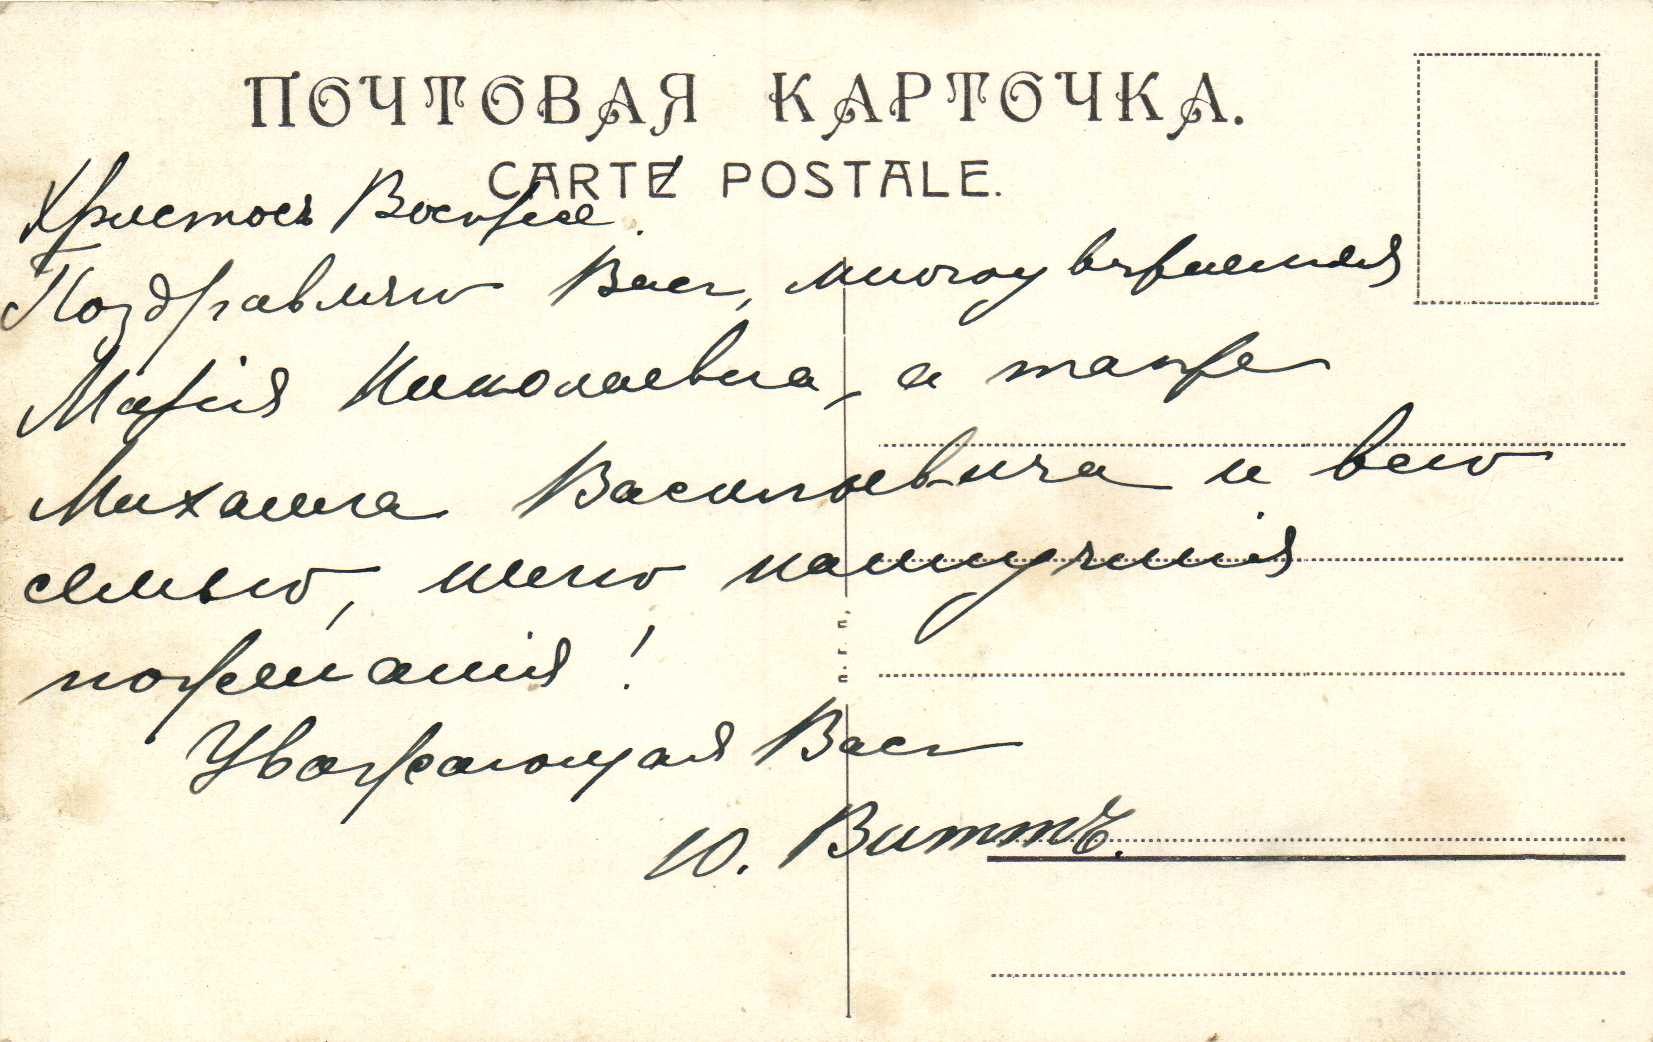 ПОЧТОВАЯ КАРТОЧКА.
CARTE POSTALE.
Христосъ Воскресе.
Поздравляю Васъ, многоуважаемая
Марія Николаевна, а также
Михаила Васильевича и всю
семью, шлю наилучшія
пожеланія!
Уважающая Васъ
Ю. Виттъ.